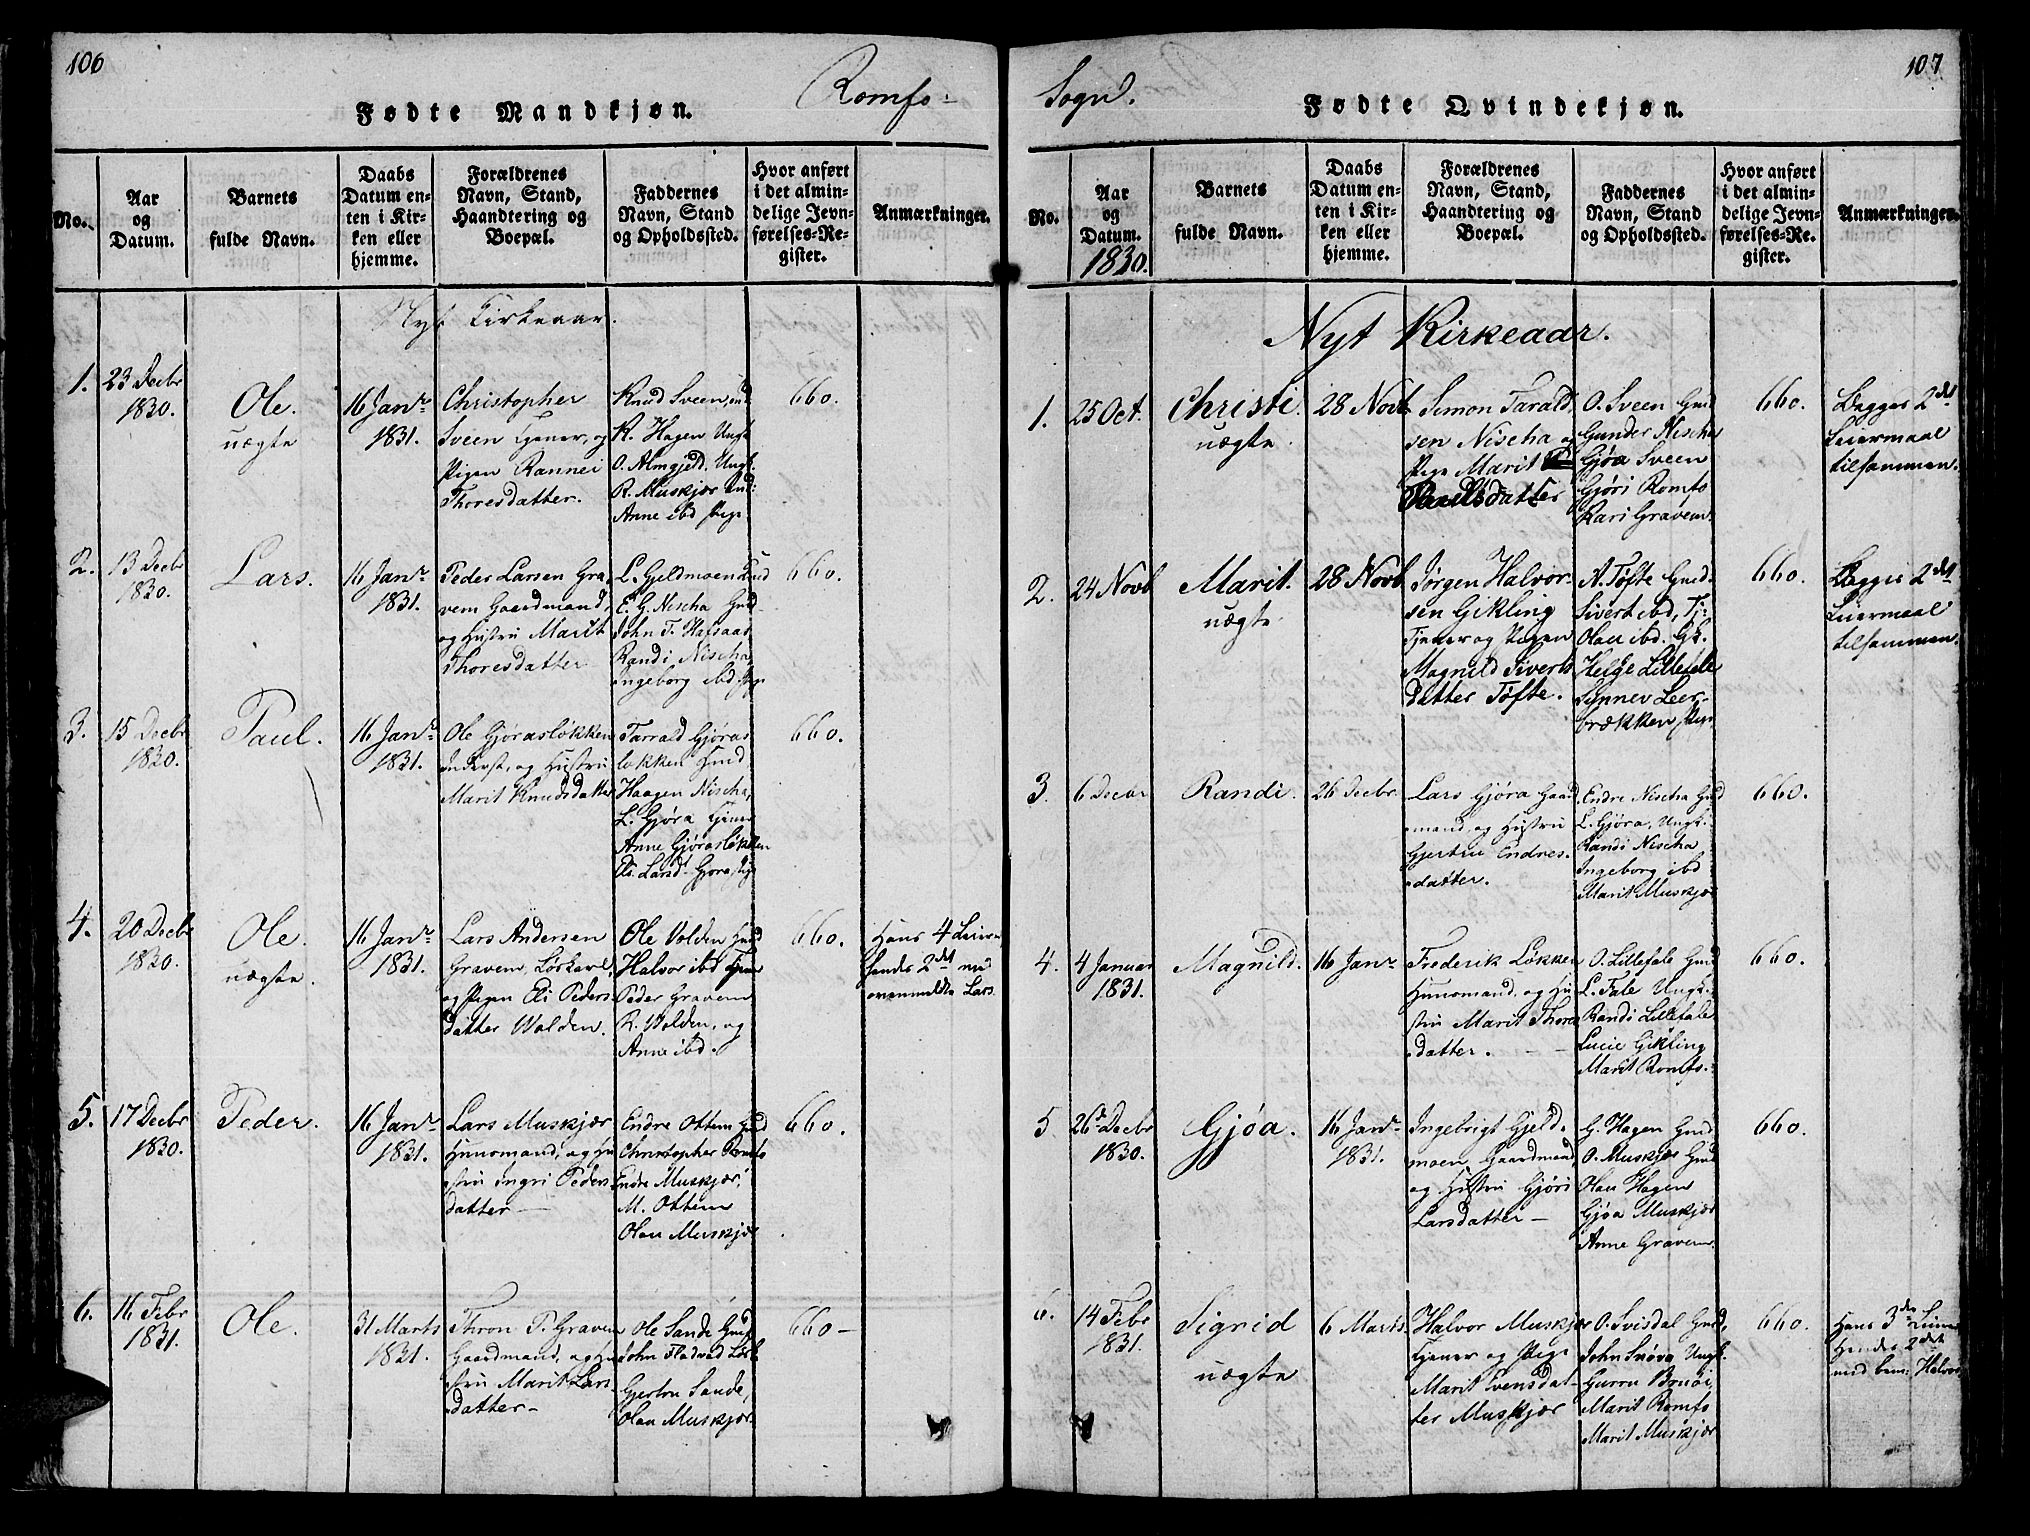 106
Romfo-
Fødte Mandkjøn.
No.
Aar
og
Datum.
Barnets
fulde Navn.
Daabs
Datum en-
ten i Kir-
ken eller
hjemme.
Forældrenes
Navn, Stand,
Haandtering og
Boepæl.
Faddernes
Navn, Stand
og Opholdssted.
Hvor anført
i det almin-
delige Jevn-
førelses-Re-
gister.
Anmærkninger.
Nyt Kirkeaar.
1.
23 Decbr
1830.
Ole.
uægte
16 Janr.
1831.
Christopher
Sveen Tjener, og
Pigen Rannei
Thoresdatter.
Knud Sveen,
R. Hagen Ungk.
O. Almgjedd. Ungk.
R. Muskjær
Anne ibd Pige
660.
2.
13 Decbr
1830.
Lars.
16 Janr.
1831.
Peder Larsen Gra-
vem Gaardmand,
og Hustru Marit
Thoresdatter
L. Gjeldmoen
E. G. Nischa Gmd
John T. Hafsaas
Randi Nischa,
Ingeborg ibd Pige
660.
3.
15 Decbr
1830.
Paul.
16 Janr.
1831.
Ole Gjørasløkken
Inderst, og Hustru
Marit Knudsdatter
Tarrald Gjøras
løkken Hmd
Haagen Nischa,
L. Gjøra Tjener
Anne Gjørasløkken
Eli Larsd. Gjøra Pige
660.
4.
20 Decbr
1830.
Ole.
uægte.
16 Janr.
1831.
Lars Andersen
Gravem, Løskarl,
og Pigen Eli Peders-
datter Wolden.
Ole Volden Hmd
Halvor ibd Tjener
Peder Gravem
R. Wolden, og
Anne ibd.
660.
Hans 4 Leierm
hendes 2det med
ovenmeldte Lars.
5.
17 Decbr
1830.
Peder.
16 Janr.
1831.
Lars Muskjær
Huusmand, og Hu
stru Ingri Peders
datter —
Endre Ottem Gmd
Christopher Romfo
Endre Muskjær,
M. Ottem
Olau Muskjær
660.
6.
16 Febr
1831.
Ole.
31 Marts
1831.
Thron P. Gravem
Gaardmand, og Hu
stru Marit Lars-
datter-
Ole Sande Gmd
John Fladvad Løsk
Gjertru Sande,
Olau Muskjær
660-
107
Sogn.
Fødte Qvindekjøn.
No.
Aar
og
Datum.
1830.
Barnets
fulde Navn.
Daabs
Datum en-
ten i Kir-
ken eller
hjemme.
Forældrenes
Navn, Stand,
Haandtering og
Boepæl.
Faddernes
Navn, Stand
og Opholdssted.
Hvor anført
i det almin-
delige Jevn-
førelses-Re-
gister.
Anmærkninger.
Nyt Kirkeaar.
1.
25 Oct.
Christi.
uægte.
28 Novb
Simon Tarald
sen Nischa og
Pige Marit
Paulsdatter
O. Sveen Gmd
Gunder Nischa
Gjøa Sveen
Gjøri Romfo
Kari Gravem.
660.
Begges 2det
Leiermaal
tilsammen.
2.
24 Novb
Marit.
uægte.
28 Novb
Jørgen Halvor-
sen Gikling
Tjener og Pigen
Magnild Siverts
datter Tøfte.
A. Tøfte Gmd.
Sivert ibd, Tj:
Olau ibd. Gk.
Helge Lillefale
Synnev Leer-
brækken Pige
660.
Begges 2det
Leiermaal
tilsammen.
3.
6 Decbr
Randi.
26 Decbr
Lars Gjøra Gaard
mand, og Hustru
Gjertru Endres-
datter.
Endre Nischa Gmd
L. Gjøra, Ungk.
Randi Nischa
Ingeborg ibd
Marit Muskjær
660.
4.
4 Januar
1831.
Magnild.
16 Janr.
Frederik Løkken
Huusmand, og Hu-
stru Marit Thores
datter.
O. Lillefale Gmd
L. Fale Ungk.
Randi Lillefale
Lucie Gikling
Marit Romfo.
660.
5
26 Decbr
1830.
Gjøa.
16 Janr.
1831.
Ingebrigt Gjeld-
moen, Gaardmand,
og Hustru Gjøri
Larsdatter —
G. Hagen Gmd
O. Muskjær Gmd
Olau Hagen
Gjøa Muskjær
Anne Gravem.
660.
6.
14 Febr
1831.
Sigrid
uægte
6 Marts.
Halvor Muskjær
Tjener og Pige
Marit Svensdat-
ter Muskjær
O. Svisdal Gmd,
John Snøva Ungk.
Gurru Bruøi,
Marit Romfo
Marit Muskjær
660.
Hans 3die Leierm
Hendes 2det
med bem: Halvor